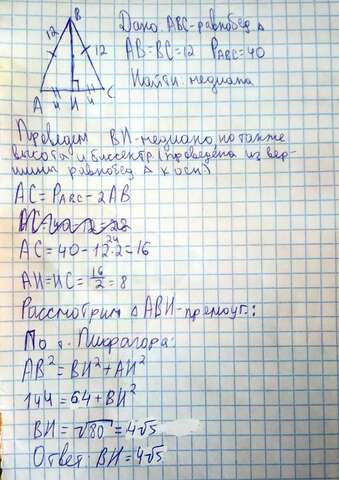 B
12
12
A
4
H
4
C
Дано ABC-равнобед. Δ
AB=BC=12 P ABC=40
Найти медиана
Проведем BH-медиана, но также
высота и биссектр. (проведена из вер-
шины равнобед Δ к осн)
AC=P ABC-2AB
AC=40-12·2=16
24
AH=HC=16/2=8
Рассмотрим ΔABH-прямоуг.:
По т. Пифагора:
AB²=BH²+AH²
144=64+BH²
BH=√80=4√5
Ответ: BH=4√5